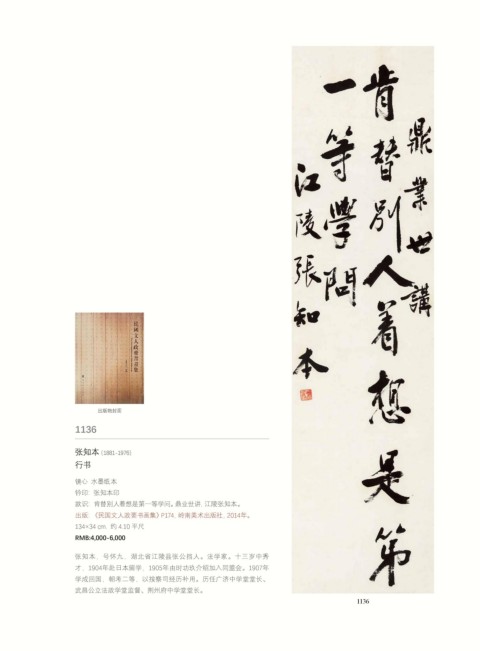 鼎業世講
肯替別人着想是第
一等學問
江陵張知本
民國文人政要書畫集
出版物封面
1136
张知本 (1881-1976)
行书
镜心 水墨纸本
钤印: 张知本印
款识: 肯替别人着想是第一等学问。鼎业世讲 江陵张知本。
出版: 《民国文人政要书画集》P174, 岭南美术出版社, 2014年。
134×34 cm 约 4.10 平尺
RMB:4,000-6,000
张知本, 号怀九, 湖北省江陵县张公挡人。法学家。十三岁中秀
才, 1904年赴日本留学, 1905年由时功玖介绍加入同盟会。1907年
学成回国, 朝考二等, 以按察司经历补用。历任广济中学堂堂长、
武昌公立法政学堂监督、荆州府中学堂堂长。
1136